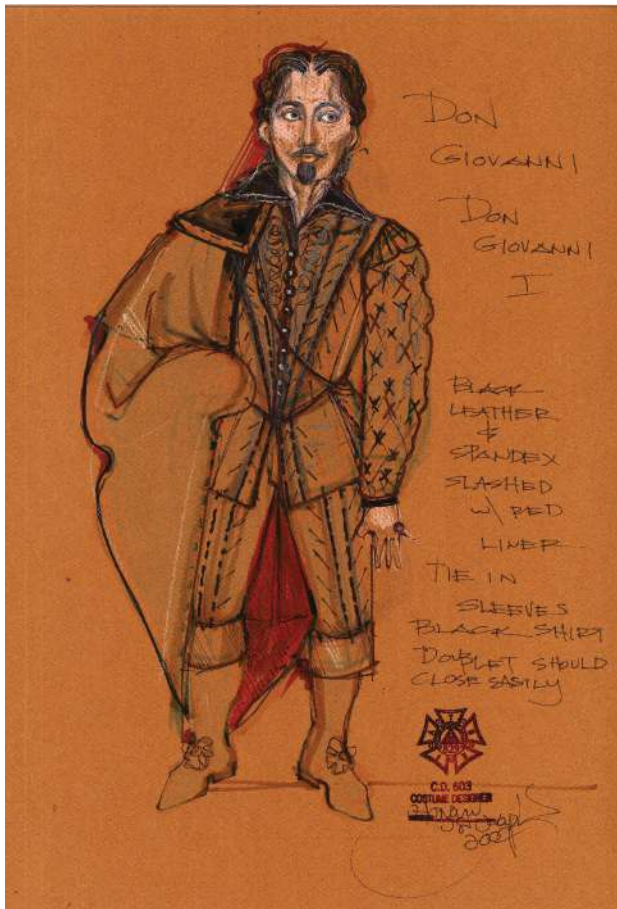 DON
GIOVANNI
DON
GIOVANNI
I
BLACK
LEATHER
&
SPANDEX
SLASHED
W\ RED
LINER
TIE IN
SLEEVES
BLACK SHIRT
DOUBLET SHOULD
CLOSE EASILY
C.D. 803
COSTUME DESIGNER